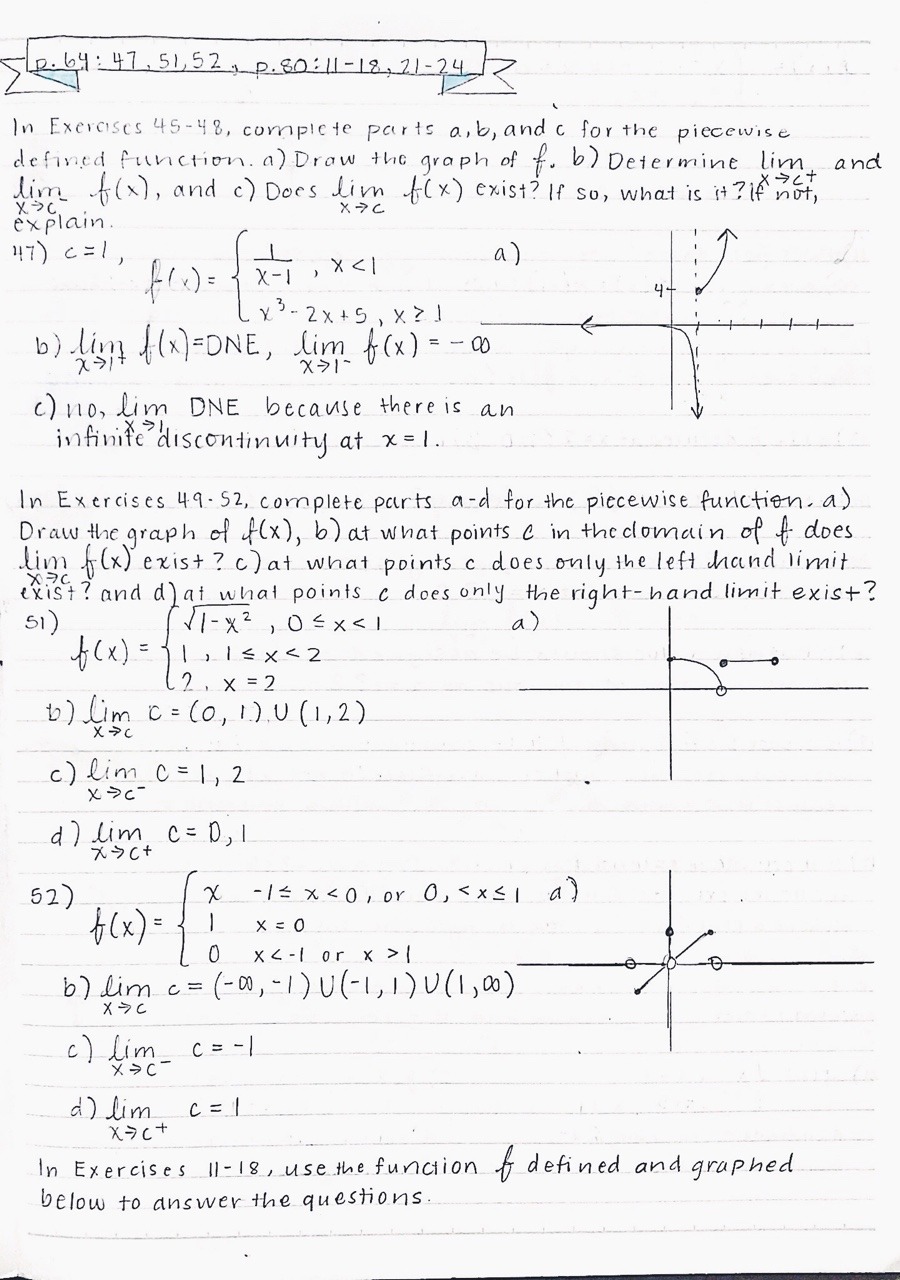 p.64: 47, 51, 52, p.80: 11-18, 21-24
In Exercises 45-48, complete parts a, b, and c for the piecewise
defined function. a) Draw the graph of f. b) Determine lim x→c+ and
lim x→c- f(x), and c) Does lim x→c f(x) exist? If so, what is it? If not,
explain.
47) c=1, f(x) = { 1/(x-1), x<1 a)
x³-2x+5, x≥1
4
b) lim x→1+ f(x)=DNE, lim x→1- f(x) = -∞
c) no, lim x→1 DNE because there is an
infinite discontinuity at x=1.
In Exercises 49-52, complete parts a-d for the piecewise function. a)
Draw the graph of f(x), b) at what points c in the domain of f does
lim x→c f(x) exist? c) at what points c does only the left hand limit
exist? and d) at what points c does only the right-hand limit exist?
51) f(x) = { √(1-x²), 0≤x<1 a)
1, 1≤x<2
2, x=2
b) lim x→c c = (0, 1) U (1, 2)
c) lim x→c- c = 1, 2
d) lim x→c+ c = 0, 1
52) f(x) = { x -1≤ x<0, or 0, <x≤1 a)
1 x=0
0 x<-1 or x>1
b) lim x→c c = (-∞, -1) U (-1, 1) U (1, ∞)
c) lim x→c- c = -1
d) lim x→c+ c = 1
In Exercises 11-18, use the function f defined and graphed
below to answer the questions.